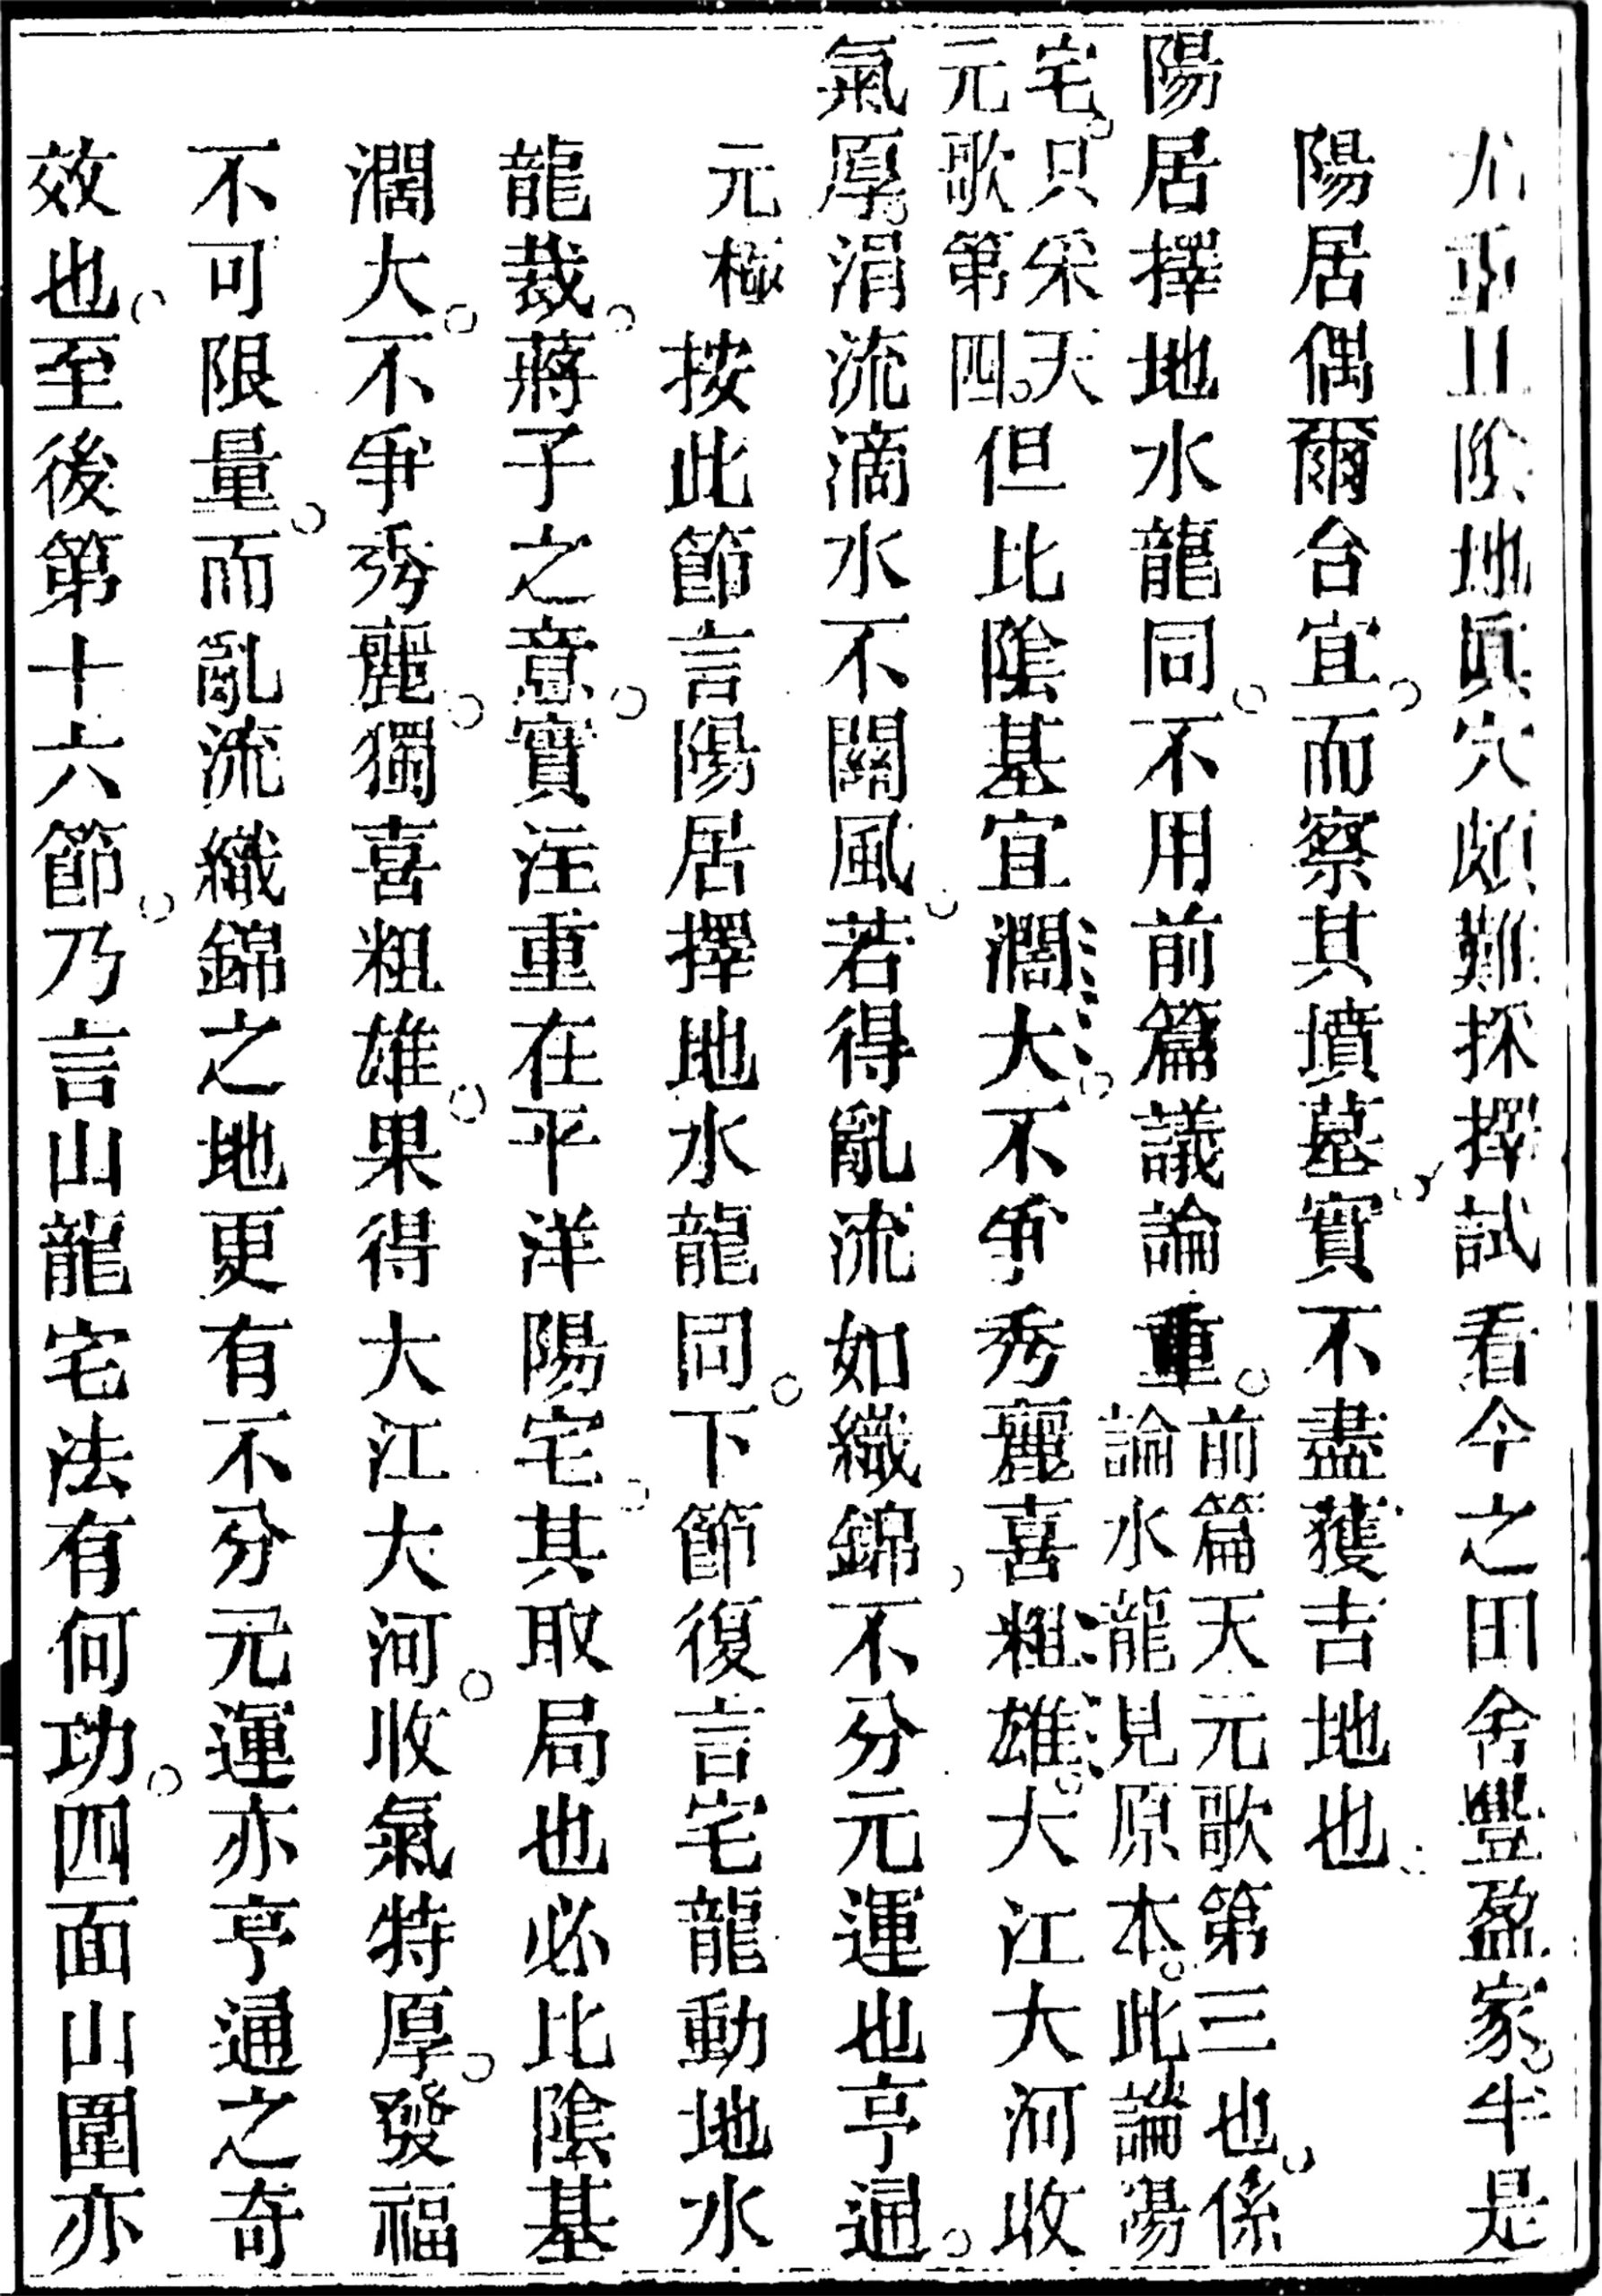 陰地眞穴頗難採擇試看今之田舍豐盈家。半是
陽居偶爾合宜。而察其墳墓。實不盡獲吉地也。
陽居擇地水龍同。不用前篇議論重。前篇天元歌第三也。係
論水龍見原本。此論陽
宅。只采天
元歌第四。但比陰基宜濶大。不爭秀麗喜粗雄。大江大河收
氣厚。涓流滴水不關風。若得亂流如織錦、不分元運也亨通。
元極 按此節言陽居擇地水龍同。下節復言宅龍動地水
龍裁。蔣子之意。實注重在平洋陽宅。其取局也必比陰基
濶大。不爭秀麗。獨喜粗雄。果得大江大河。收氣特厚。發福
不可限量。而亂流織錦之地更有不分元運亦亨通之奇
效也。至後第十六節。乃言山龍宅法有何功。四面山圍亦